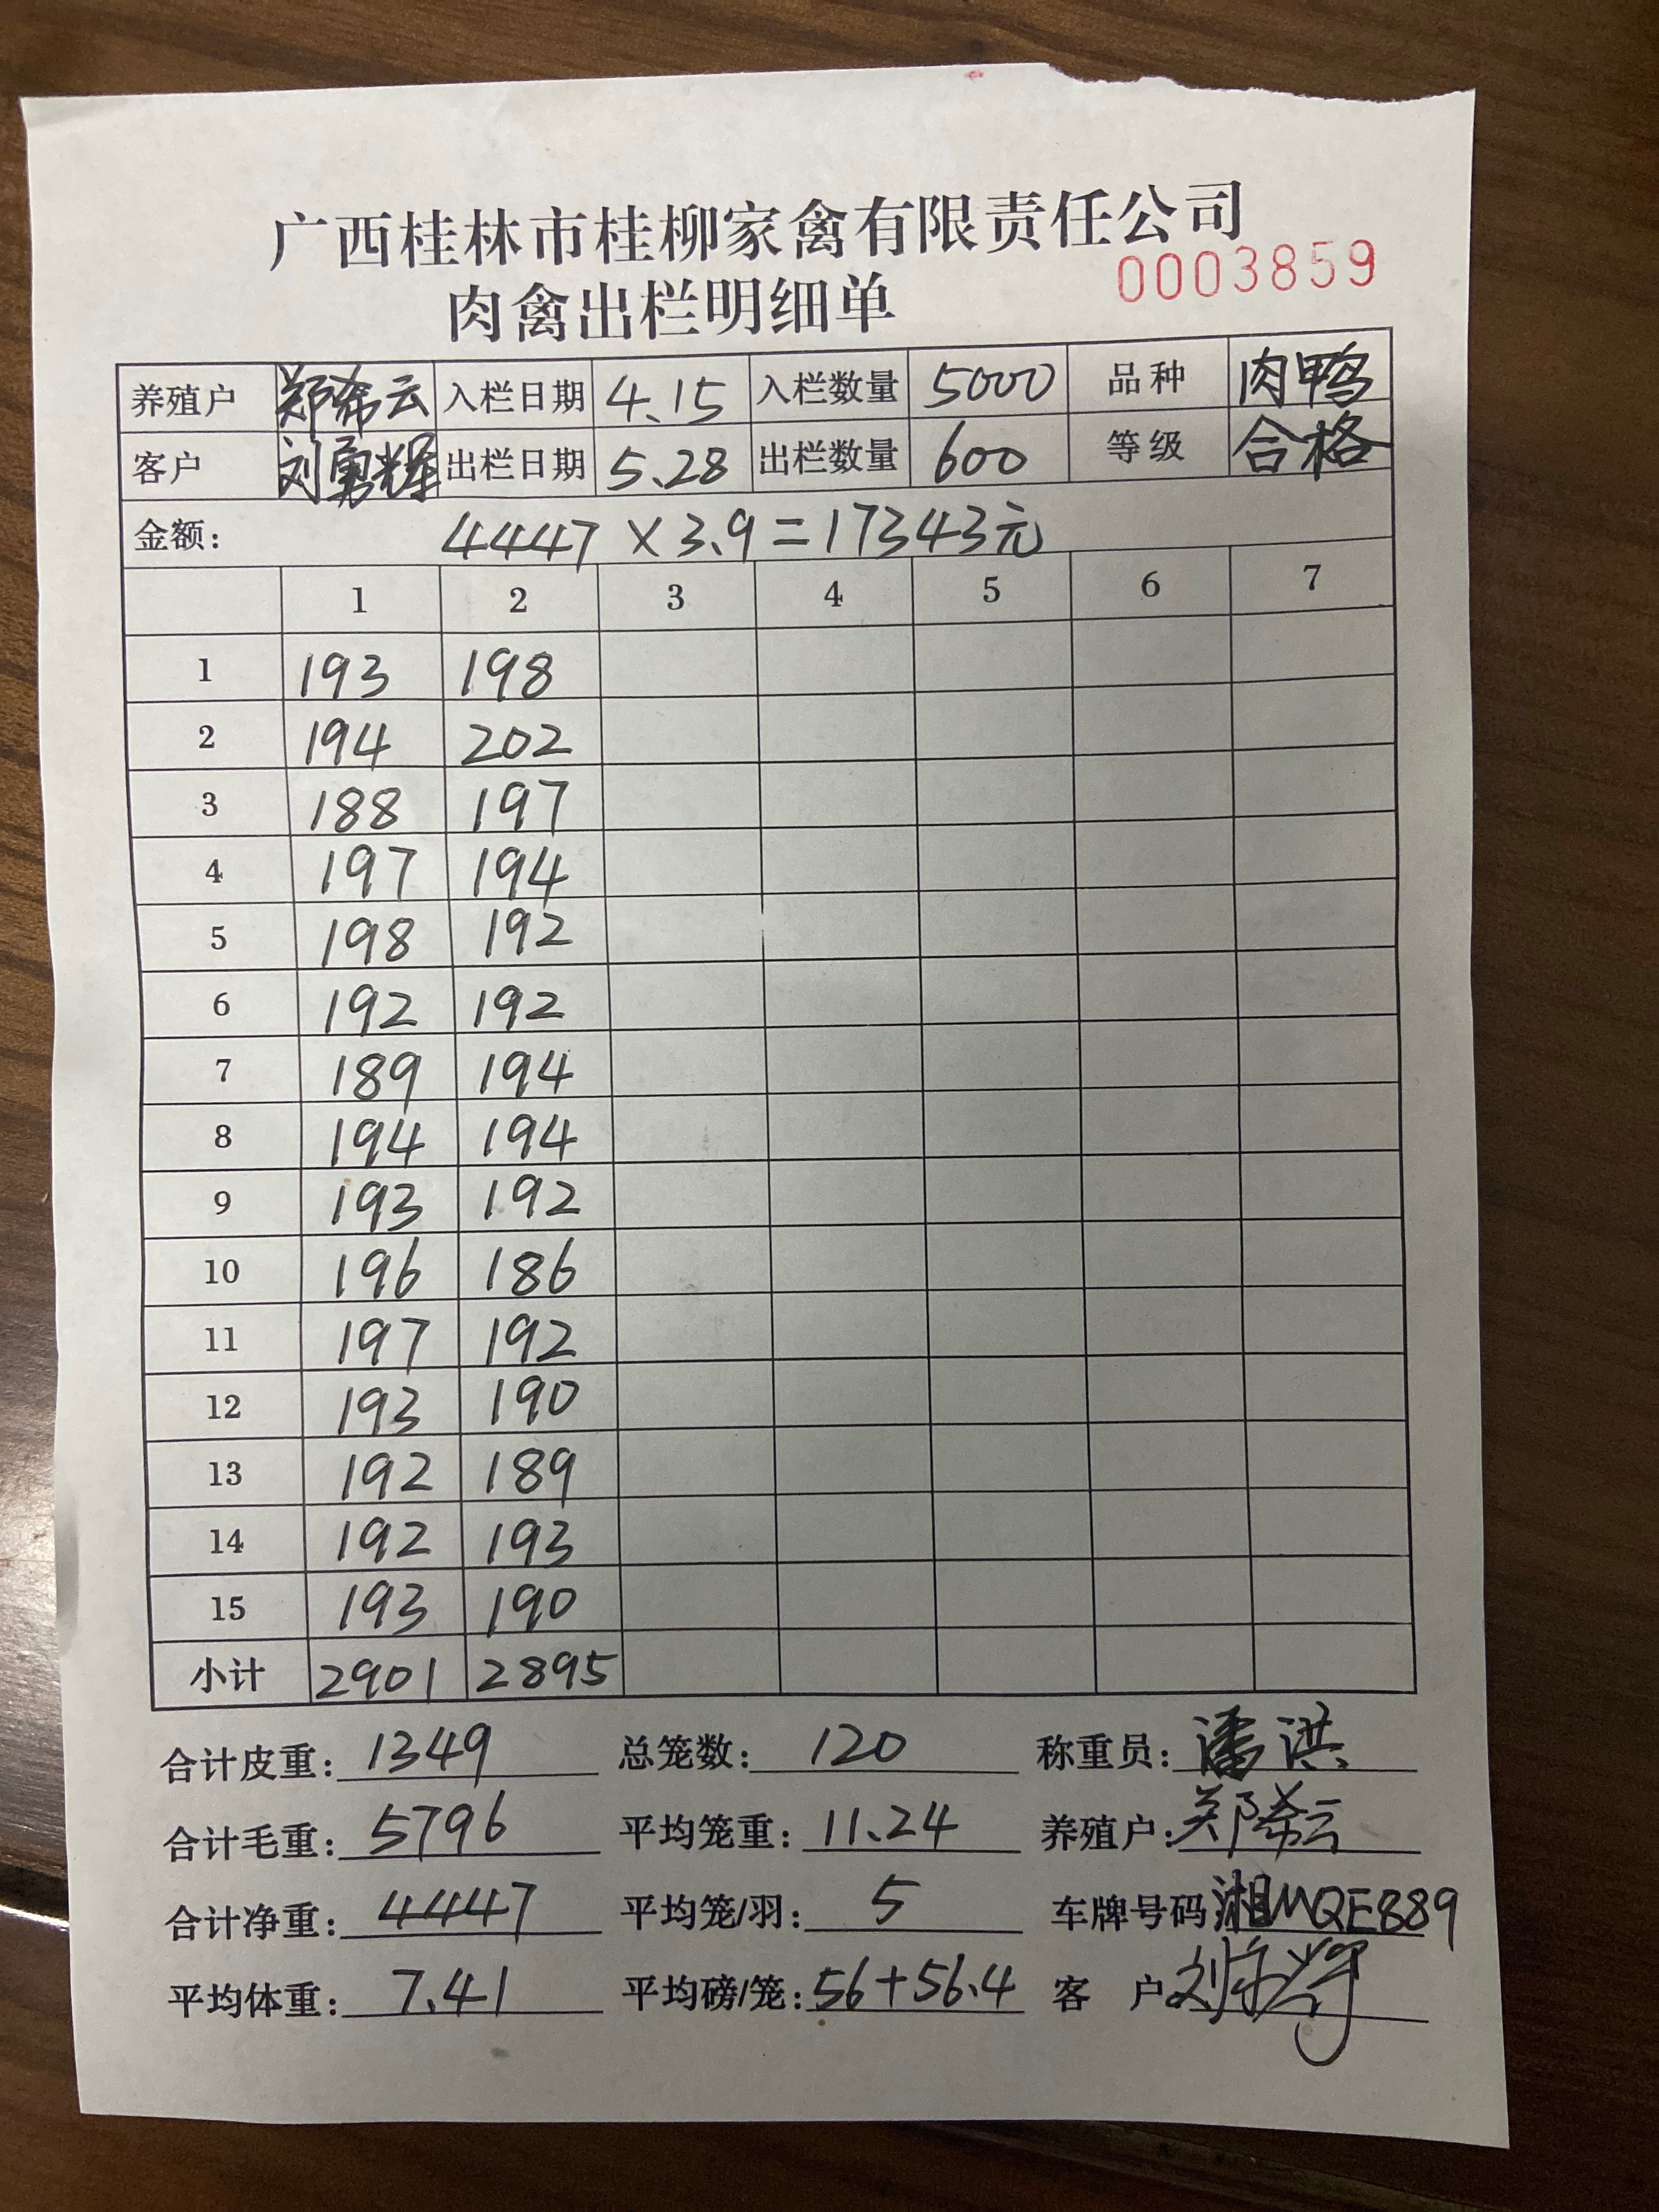 广西桂林市桂柳家禽有限责任公司
肉禽出栏明细单 0003859
养殖户 郑希云 入栏日期 4.15 入栏数量 5000 品种 肉鸭
客户 刘勇辉 出栏日期 5.28 出栏数量 600 等级 合格
金额: 4447×3.9=17343元
1 2 3 4 5 6 7
1 193 198
2 194 202
3 188 197
4 197 194
5 198 192
6 192 192
7 189 194
8 194 194
9 193 192
10 196 186
11 197 192
12 193 190
13 192 189
14 192 193
15 193 190
小计 2901 2895
合计皮重: 1349 总笼数: 120 称重员: 潘洪
合计毛重: 5796 平均笼重: 11.24 养殖户: 郑希云
合计净重: 4447 平均笼/羽: 5 车牌号码 湘MQE889
平均体重: 7.41 平均磅/笼: 56+56.4 客户